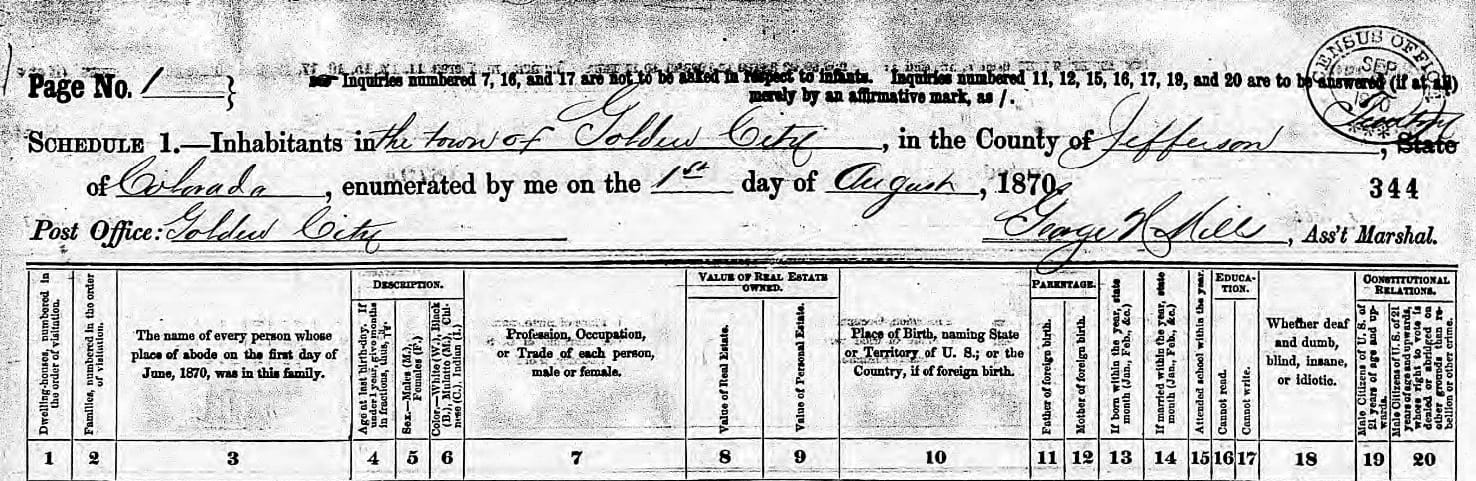 Page No. 1 } Inquiries numbered 7, 16, and 17 are not to be asked in respect to infants. Inquiries numbered 11, 12, 15, 16, 17, 19, and 20 are to be answered (if at all)
merely by an affirmative mark, as /.
CENSUS OFFICE
SEP
1870
SCHEDULE 1.—Inhabitants in the town of Golden City, in the County of Jefferson, State
of Colorada, enumerated by me on the 1st day of August, 1870.
344
Post Office: Golden City
George N Mills, Ass't Marshal.
Dwelling-houses, numbered in the order of visitation.
Families, numbered in the order of visitation.
The name of every person whose
place of abode on the first day of
June, 1870, was in this family.
DESCRIPTION.
Age at last birth-day. If under 1 year, give months in fractions, thus, 3/12
Sex.—Males (M.), Females (F.)
Color.—White (W.), Black (B.), Mulatto (M.), Chinese (C.), Indian (I.)
Profession, Occupation,
or Trade of each person,
male or female.
VALUE OF REAL ESTATE
OWNED.
Value of Real Estate.
Value of Personal Estate.
Place of Birth, naming State
or Territory of U. S.; or the
Country, if of foreign birth.
PARENTAGE.
Father of foreign birth.
Mother of foreign birth.
If born within the year, state month (Jan., Feb., &c.)
If married within the year, state month (Jan., Feb., &c.)
Attended school within the year.
EDUCA-
TION.
Cannot read.
Cannot write.
Whether deaf
and dumb,
blind, insane,
or idiotic.
CONSTITUTIONAL
RELATIONS.
Male Citizens of U. S. of 21 years of age and upwards.
Male Citizens of U. S. of 21 years of age and upwards, whose right to vote is denied or abridged on other grounds than rebellion or other crime.
1 2 3 4 5 6 7 8 9 10 11 12 13 14 15 16 17 18 19 20